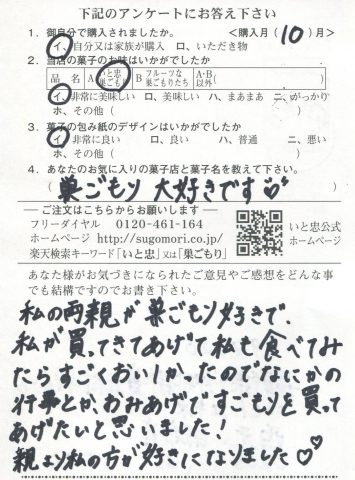 下記のアンケートにお答え下さい
1. 御自分で購入されましたか。 <購入月(10)月>
イ、自分又は家族が購入 ロ、いただき物
2. 当店の菓子のお味はいかがでしたか
品名 A いと忠巣ごもり B フルーツな巣ごもりたち A・B以外( )
イ、非常に美味しい ロ、美味しい ハ、まあまあ ニ、がっかり
ホ、その他( )
3. 菓子の包み紙のデザインはいかがでしたか
イ、非常に良い ロ、良い ハ、普通 ニ、悪い
ホ、その他( )
4. あなたのお気に入りの菓子店と菓子名を教えて下さい。
(巣ごもり 大好きです♡♡)
―ご注文はこちらからお願いします―
フリーダイヤル 0120-461-164
ホームページ http://sugomori.co.jp/
楽天検索キーワード「いと忠」又は「巣ごもり」
いと忠公式
ホームページ
あなた様がお気づきになられたご意見やご感想をどんな事
でも結構ですのでお書き下さい。
私の両親が巣ごもり好きで、
私が買ってきてあげて私も食べてみ
たらすごくおいしかったのでなにかの
行事とか、おみあげですごもりを買って
あげたいと思いました!
親より私の方が好きになりました♡♡